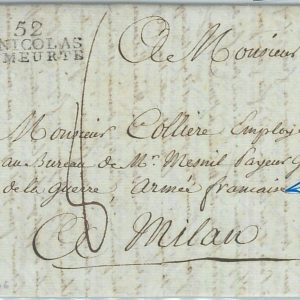 52
NICOLAS
MEURTE
A Monsieur
Monsieur Colliere Employé
au Bureau de Mr. Mesnil Payeur G
de la guerre, Armée francaise
A Milan